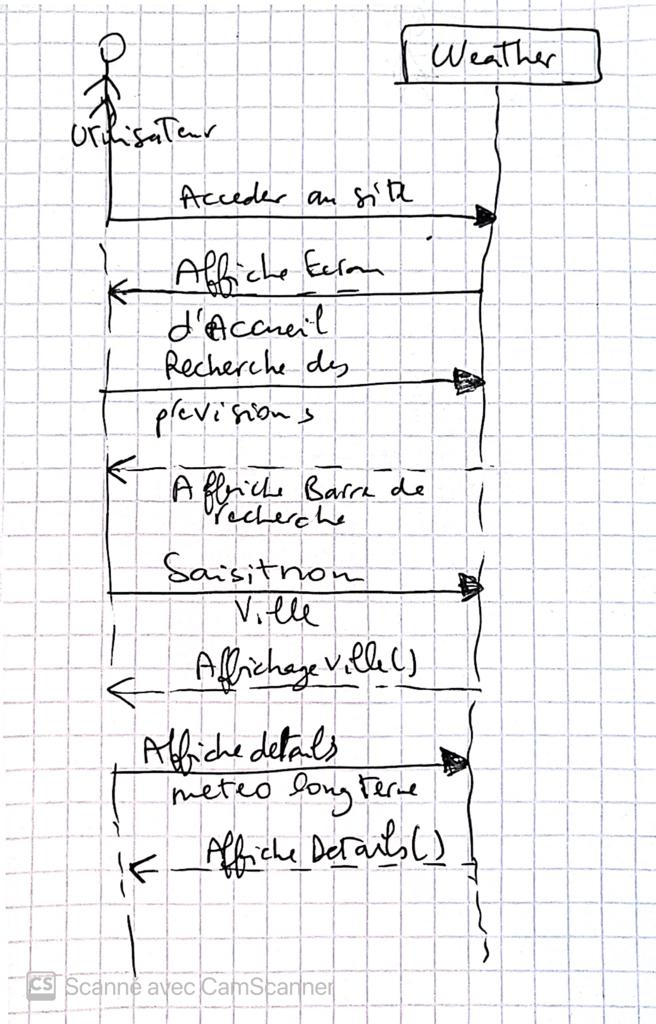 Weather
Utilisateur
Acceder au site
Affiche Ecran
d'Accueil
Recherche des
previsions
Affiche Barre de
recherche
Saisit nom
Ville
Affichage Ville()
Affiche details
meteo long terme
Affiche Details()
CS Scanné avec CamScanner